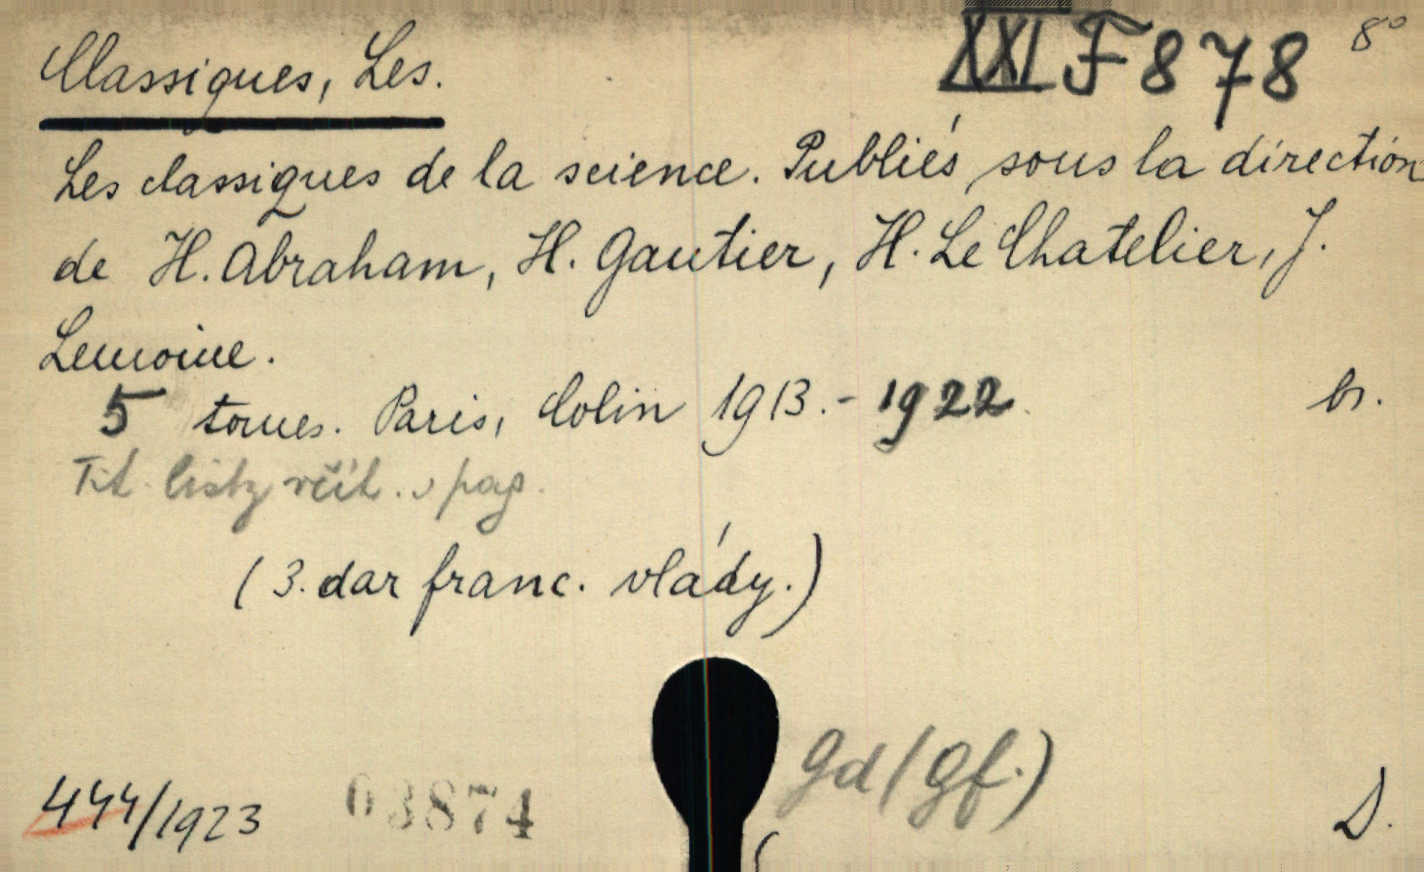 Classiques, Les. XXI F 878 8°
Les classiques de la science. Publiés sous la direction
de H. Abraham, H. Gautier, H. Le Chatelier, J.
Lemoine.
5 tomes. Paris, Colin 1913.- 1922 br.
Tit. listy včít. v pag.
(3. dar franc. vlády.)
Gd (Gf.)
444/1923 03874 D.